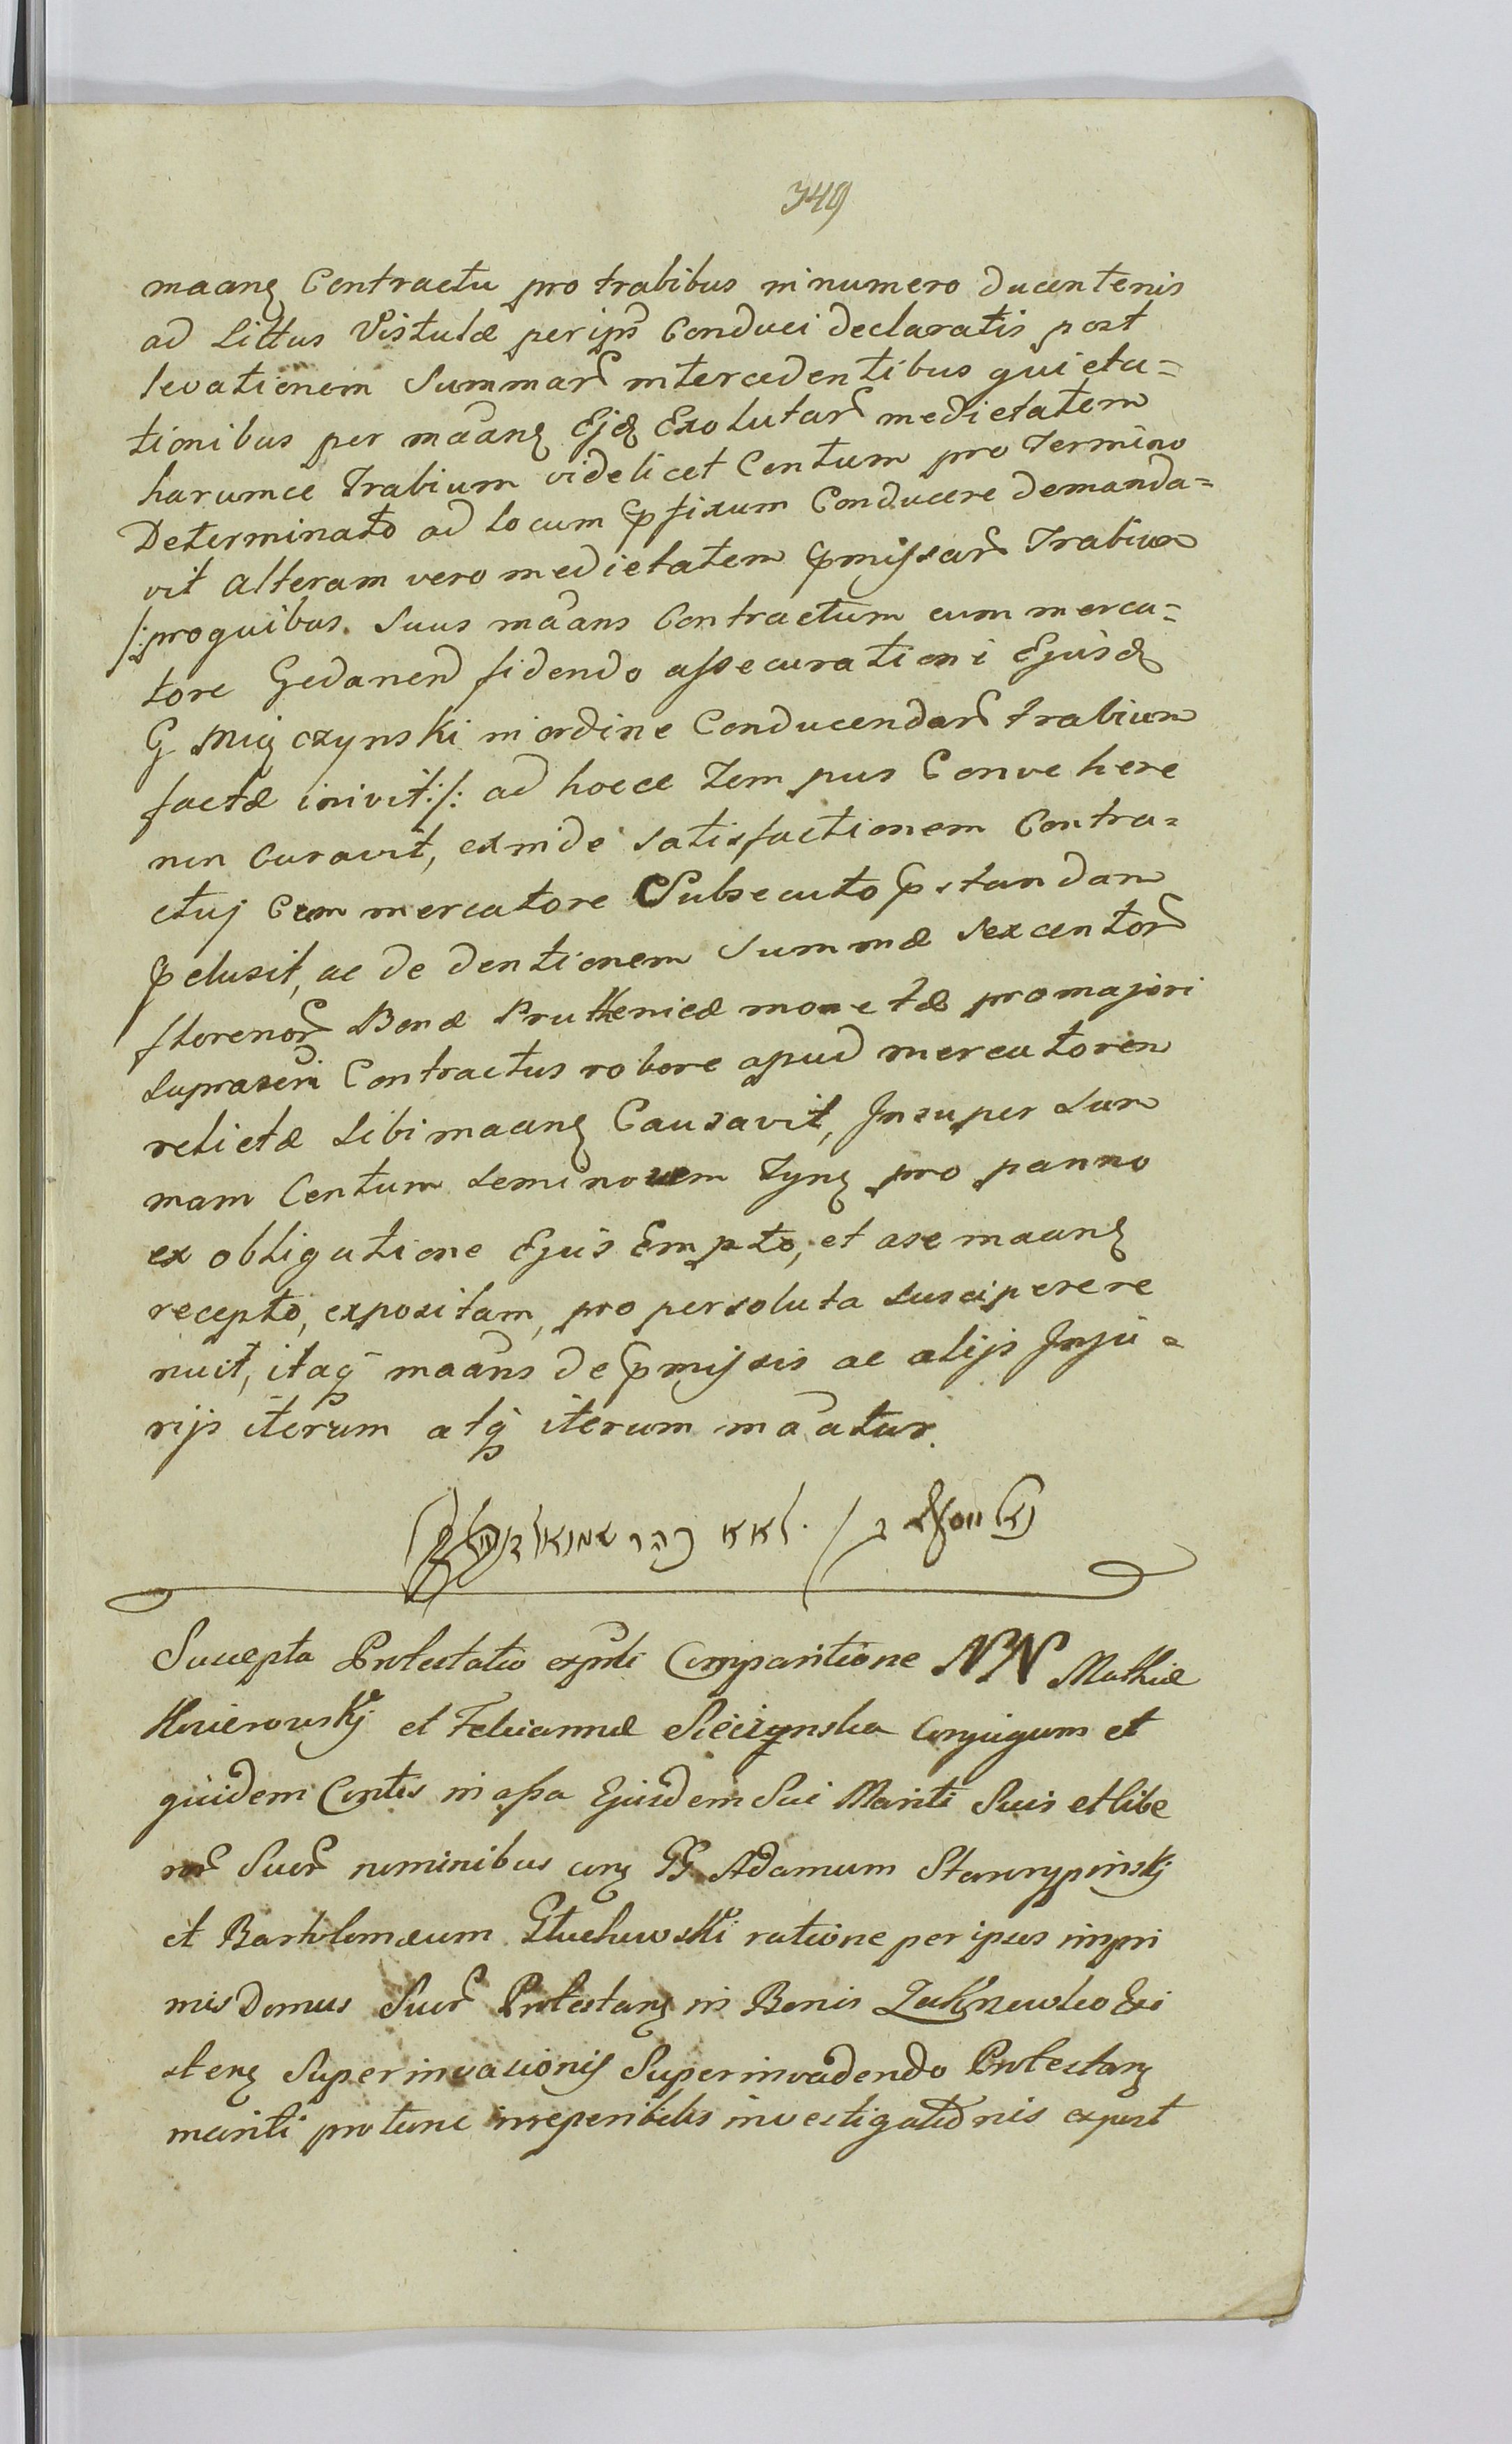 349
maanȩ Contractu pro trabibus in numero ducentenis
ad Littus Vistulæ per ips Conduci declaratis post
levationem Summar intercedentibus quieta=
tionibus per maanȩ Ejȩ Exolutar medietatem
harumce Trabium videlicet Centum pro Termino
Determinato ad locum pfixum Conducere demanda=
vit alteram vero medietatem pmissar Trabium
/:pro quibus Suus maans Contractum cum merca=
tore Gedanen fidendo assecurationi Ejusd
G Miączynski in ordine Conducendar trabium
factæ inivit:/: ad hocce Tempus Convehere
non Curavit, exinde satisfactionem Contra=
ctuj Cum mercatore Subsecuto pstandam
pclusit, ac dedentionem Summæ sexcentor
florenor Bonæ Pruthenicæ monetæ pro majori
suprascri Contractus robore apud mercatorem
relictæ Sibi maanȩ Causavit, Insuper Sum
mam Centum Seminovem Tynȩ pro panno
ex obligatione Ejus Empto, et a se maanȩ
recepto, expositam, pro persoluta suscipere re
nuit, itaq maans de pmissis ac alijs Inju=
rijs iterum atq iterum maatur.
Suscepta Protestatio expti Comparitione NN Mathiæ
et Felicianna Conjugum et
quidem Contis in assa Ejusdem Sui Mariti Suis et libe
ror Suor nominibus con GG Adamum
et Bartholomæum ratione per ipsos impri
mis Domus Suor Protestanȩ in Bonis Exi
stenȩ Superinvasionis Superinvadendo Protestanȩ
mariti pro tunc irreperibilis investigationis expost